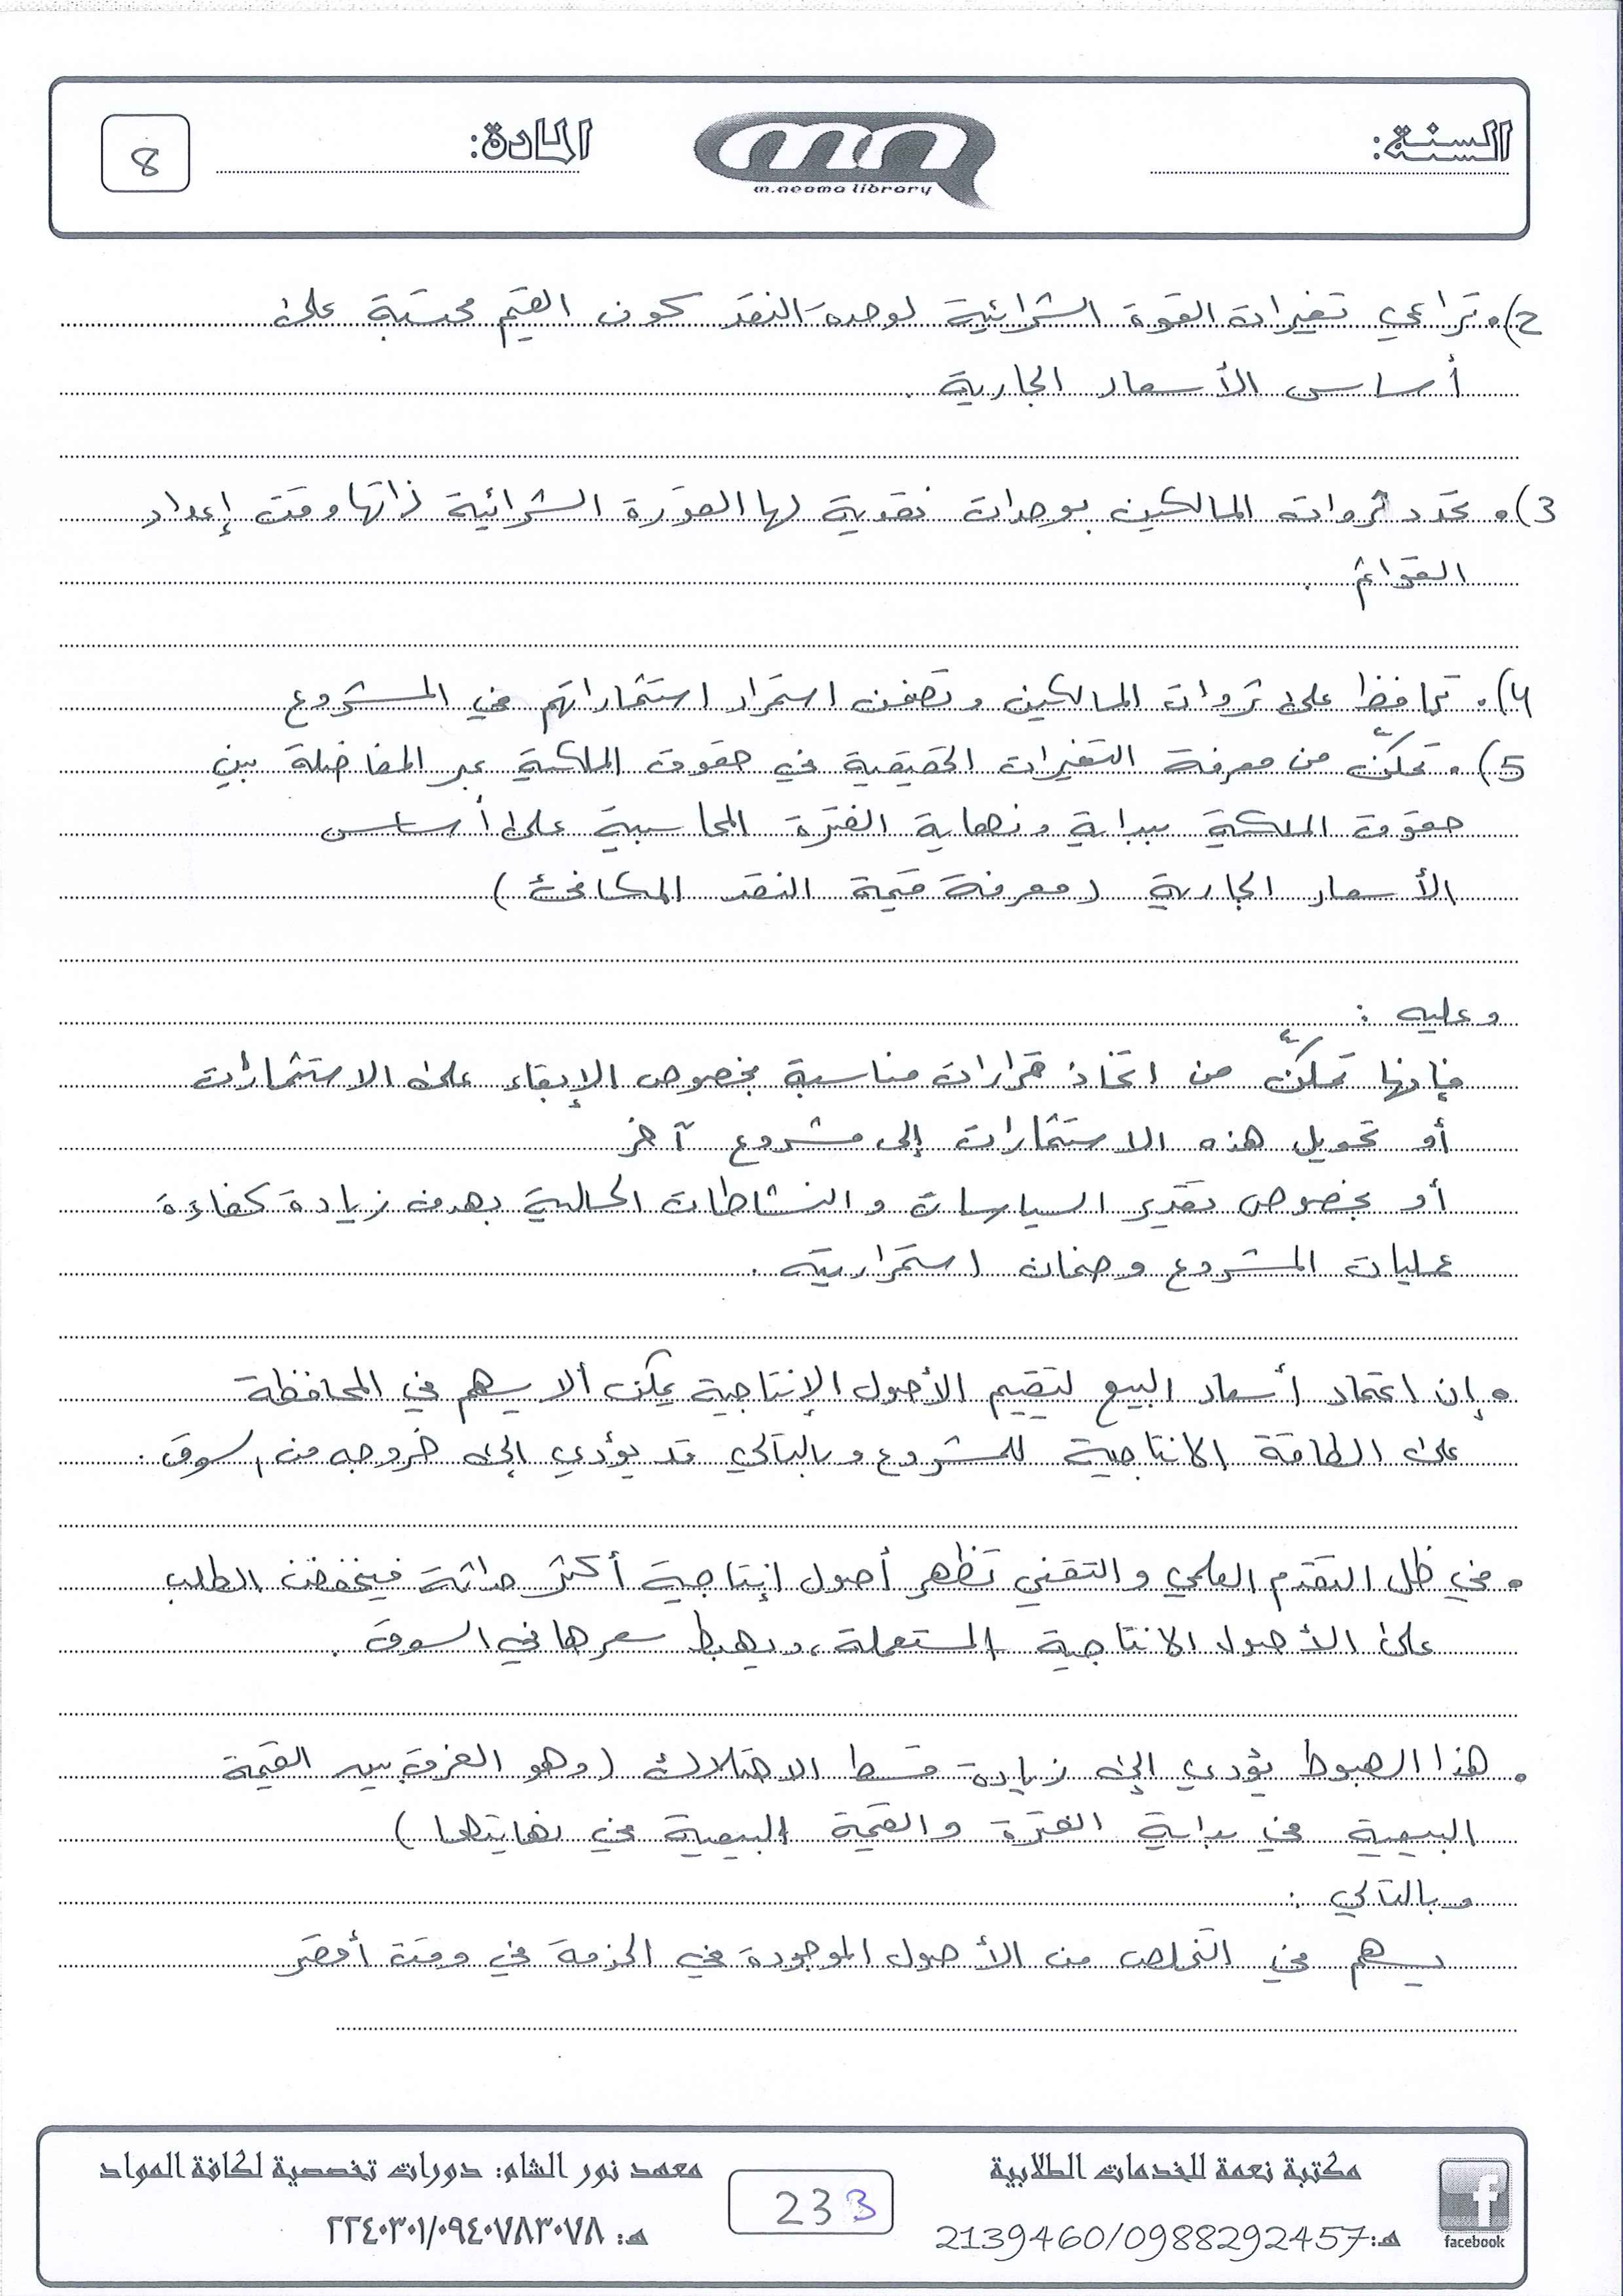 السنة:
m.neoma library
المادة:
8
2). تراعي تغيرات القوة الشرائية لوحدة النقد كون القيم محسبة على
أساس الأسعار الجارية .
3). تحدد ثروات المالكين بوحدات نقدية لها القدرة الشرائية ذاتها وقت إعداد
القوائم .
4). تحافظ على ثروات المالكين وتضمن استمرار استثماراتهم في المشروع
5). تمكّن من معرفة التغيرات الحقيقية في حقوق الملكية عبر المفاضلة بين
حقوق الملكية ببداية ونهاية الفترة المحاسبية على أساس
الأسعار الجارية (معرفة قيمة النقد المكافئ)
وعليه :
فإنها تمكّن من اتخاذ قرارات مناسبة بخصوص الإبقاء على الاستثمارات
أو تحويل هذه الاستثمارات إلى مشروع آخر
أو بخصوص تقدير السياسات والنشاطات الحالية بهدف زيادة كفاءة
عمليات المشروع وضمان استمراريته .
• إن اعتماد أسعار البيع لتقييم الأصول الإنتاجية يمكن ألا يسهم في المحافظة
على الطاقة الانتاجية للمشروع وبالتالي قد يؤدي إلى خروجه من السوق .
• في ظل التقدم العلمي والتقني تظهر أصول إنتاجية أكثر حداثة فينخفض الطلب
على الأصول الانتاجية المستعملة، ويهبط سعرها في السوق .
• هذا الهبوط يؤدي إلى زيادة قسط الاهتلاك (وهو الفرق بين القيمة
البيعية في بداية الفترة والقيمة البيعية في نهايتها)
وبالتالي :
يسهم في التخلص من الأصول الموجودة في الخدمة في وقت أقصر
facebook
مكتبة نعمة للخدمات الطلابية
هـ:2139460/0988292457
233
معهد نور الشام: دورات تخصصية لكافة المواد
هـ: ٢٢٤٠٣٠١/٠٩٤٠٧٨٣٠٧٨